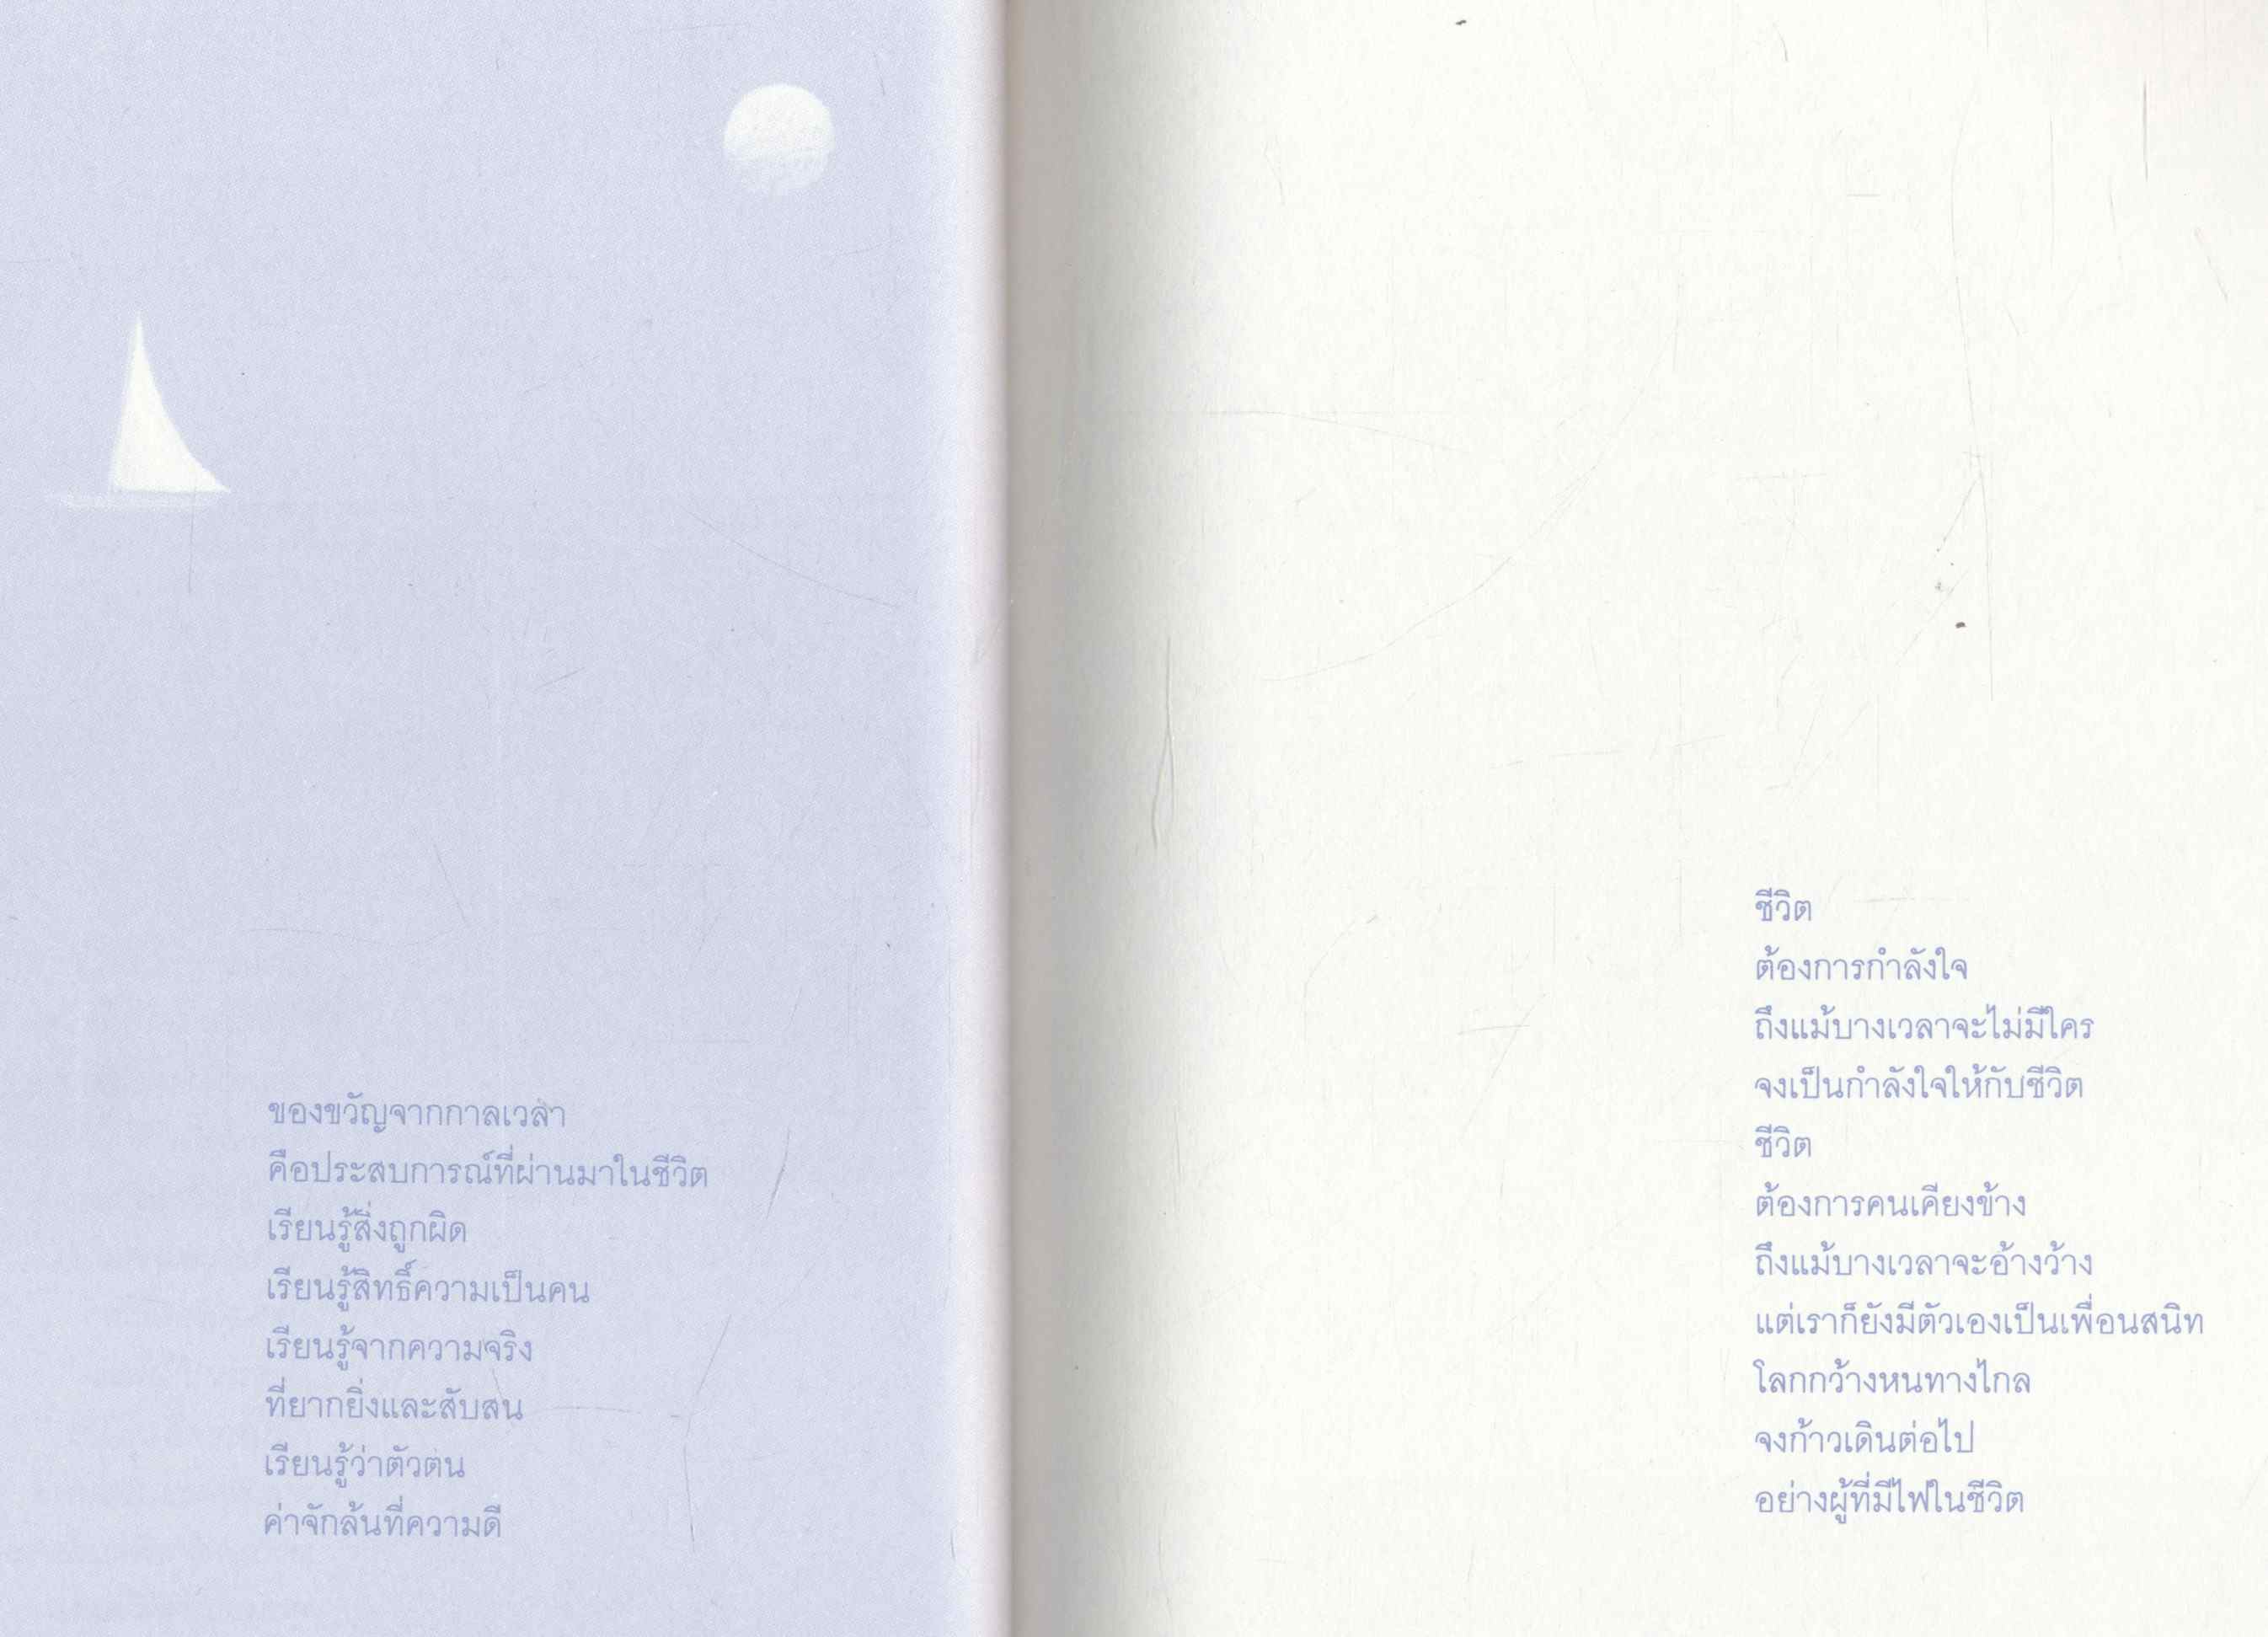 ของขวัญจากกาลเวลา
คือประสบการณ์ที่ผ่านมาในชีวิต
เรียนรู้สิ่งถูกผิด
เรียนรู้สิทธิ์ความเป็นคน
เรียนรู้จากความจริง
ที่ยากยิ่งและสับสน
เรียนรู้ว่าตัวตน
ค่าจักล้นที่ความดี
ชีวิต
ต้องการกำลังใจ
ถึงแม้บางเวลาจะไม่มีใคร
จงเป็นกำลังใจให้กับชีวิต
ชีวิต
ต้องการคนเคียงข้าง
ถึงแม้บางเวลาจะอ้างว้าง
แต่เราก็ยังมีตัวเองเป็นเพื่อนสนิท
โลกกว้างหนทางไกล
จงก้าวเดินต่อไป
อย่างผู้ที่มีไฟในชีวิต